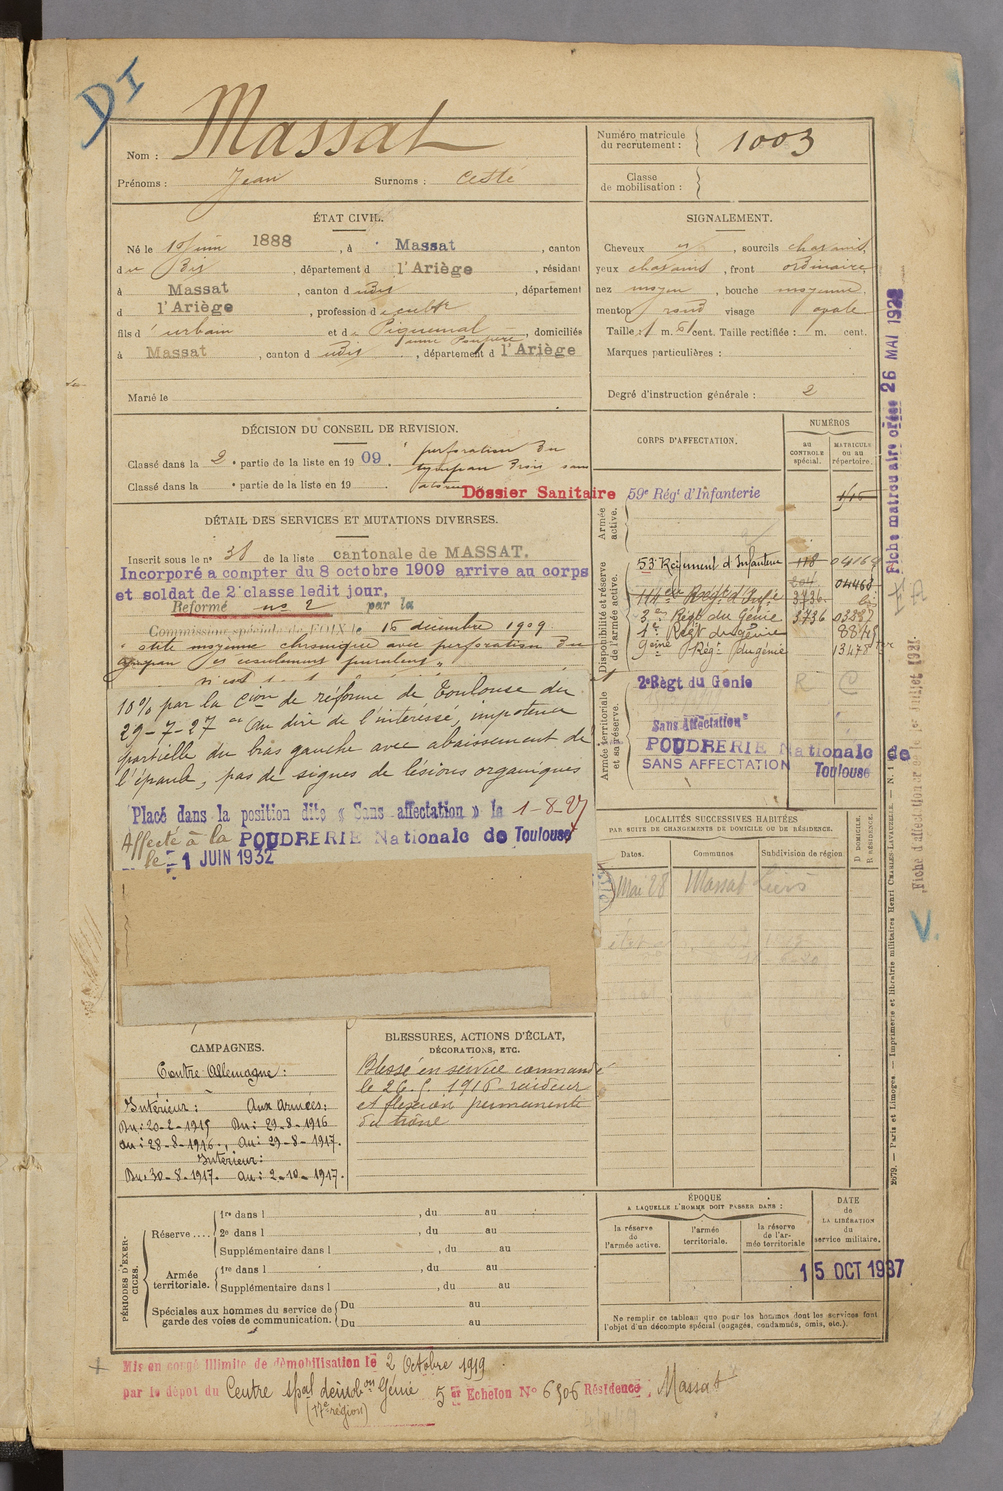 DI
Massat
Nom :
Prénoms : Jean Surnoms : Cesté
Numéro matricule du recrutement : 1003
Classe de mobilisation :
ÉTAT CIVIL.
Né le 10 juin 1888, à Massat, canton
du dit, département d l'Ariège, résidant
à Massat, canton dudit, département
d l'Ariège, profession de cult
fils d' urbain et de Piquemal, domiciliés
anne Poupère
à Massat, canton dudit, département d l'Ariège
Marié le
SIGNALEMENT.
Cheveux et, sourcils chatains,
yeux chatains, front ordinaire
nez moyen, bouche moyenne,
menton rond visage ovale
Taille : 1 m. 61 cent. Taille rectifiée : m. cent.
Marques particulières :
Degré d'instruction générale : 2
DÉCISION DU CONSEIL DE REVISION.
Classé dans la 2e partie de la liste en 1909. perforation du
tympan droit sans
Classé dans la e partie de la liste en 19
Dossier Sanitaire
DÉTAIL DES SERVICES ET MUTATIONS DIVERSES.
Inscrit sous le n° 38 de la liste cantonale de MASSAT.
Incorporé a compter du 8 octobre 1909 arrive au corps
et soldat de 2e classe ledit jour,
Reformé n° 2 par la
Commission spéciale de FOIX le 16 décembre 1909
" otite moyenne chronique avec perforation du
tympan et écoulement purulent "
10% par la Cion de réforme de Toulouse du
29-7-27 au dire de l'intéressé, impotence
partielle du bras gauche avec abaissement de
l'épaule, pas de signes de lésions organiques
Placé dans la position dite « Sans affectation » le 1-8-27
Affecté à la POUDRERIE Nationale de Toulouse
le 1 JUIN 1932
CORPS D'AFFECTATION.
NUMÉROS
AU CONTROLE spécial.
MATRICULE ou au répertoire.
Armée active.
59e Régt d'Infanterie
Disponibilité et réserve de l'armée active.
53e Régiment d'Infanterie 118 04169
204 04468
114e Régt d'Infie 3736 bis
3e Régt du Génie 3736
1er Regt du génie
9ème Régt du génie 13478
Armée territoriale et sa réserve.
2e Régt du Génie R C
Sans Affectation
POUDRERIE Nationale de
SANS AFFECTATION Toulouse
LOCALITÉS SUCCESSIVES HABITÉES
PAR SUITE DE CHANGEMENTS DE DOMICILE OU DE RÉSIDENCE.
Dates. Communes Subdivision de région
D. DOMICILE. R. RÉSIDENCE.
Mai 28 Massat
CAMPAGNES.
Contre Allemagne :
Intérieur : Aux Armées :
Du : 20-2-1915 Du : 29-8-1916
au : 28-8-1916, au : 29-8-1917.
Intérieur :
Du 30-8-1917. au : 2-10-1917.
BLESSURES, ACTIONS D'ÉCLAT,
DÉCORATIONS, ETC.
Blessé en service commandé
le 26. 1916 - raideur
et flexion permanente
du
PÉRIODES D'EXERCICES.
Réserve
1re dans l , du au
2e dans l , du au
Supplémentaire dans l , du au
Armée territoriale.
1re dans l , du au
Supplémentaire dans l , du au
Spéciales aux hommes du service de garde des voies de communication.
Du au
Du au
ÉPOQUE
A LAQUELLE L'HOMME DOIT PASSER DANS :
la réserve de l'armée active.
l'armée territoriale.
la réserve de l'armée territoriale
DATE
de
LA LIBÉRATION
du
service militaire.
15 OCT 1937
Ne remplir ce tableau que pour les hommes dont les services font
l'objet d'un décompte spécial (engagés, condamnés, omis, etc.).
Mis en congé illimité de démobilisation le 2 Octobre 1919
par le dépôt du Centre spal démobon Génie 5er Echelon N° 6506 Résidence, Massat
(17e région)
Fiche matriculaire créée 26 MAI 1928
Fiche d'affectation créée le 1er juillet 1921.
V.
2679. — Paris et Limoges. — Imprimerie et librairie militaires Henri CHARLES-LAVAUZELLE. — N. 1